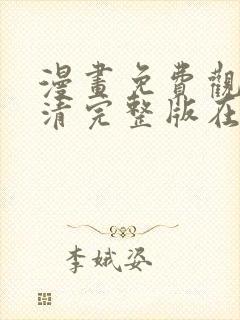 漫畫免費觀
清完整版在
李娥姿